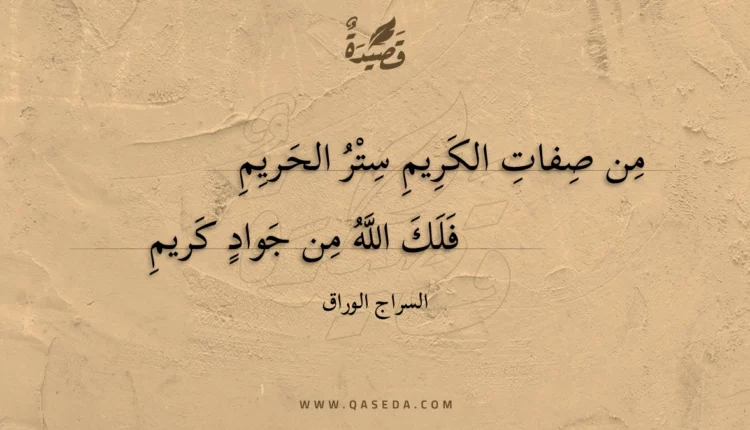 قَصِيْدَةٌ
مِن صِفاتِ الكَرِيمِ سِتْرُ الحَرِيِمِ
فَلَكَ اللَّهُ مِن جَوادٍ كَريمِ
السراج الوراق
WWW.QASEDA.COM